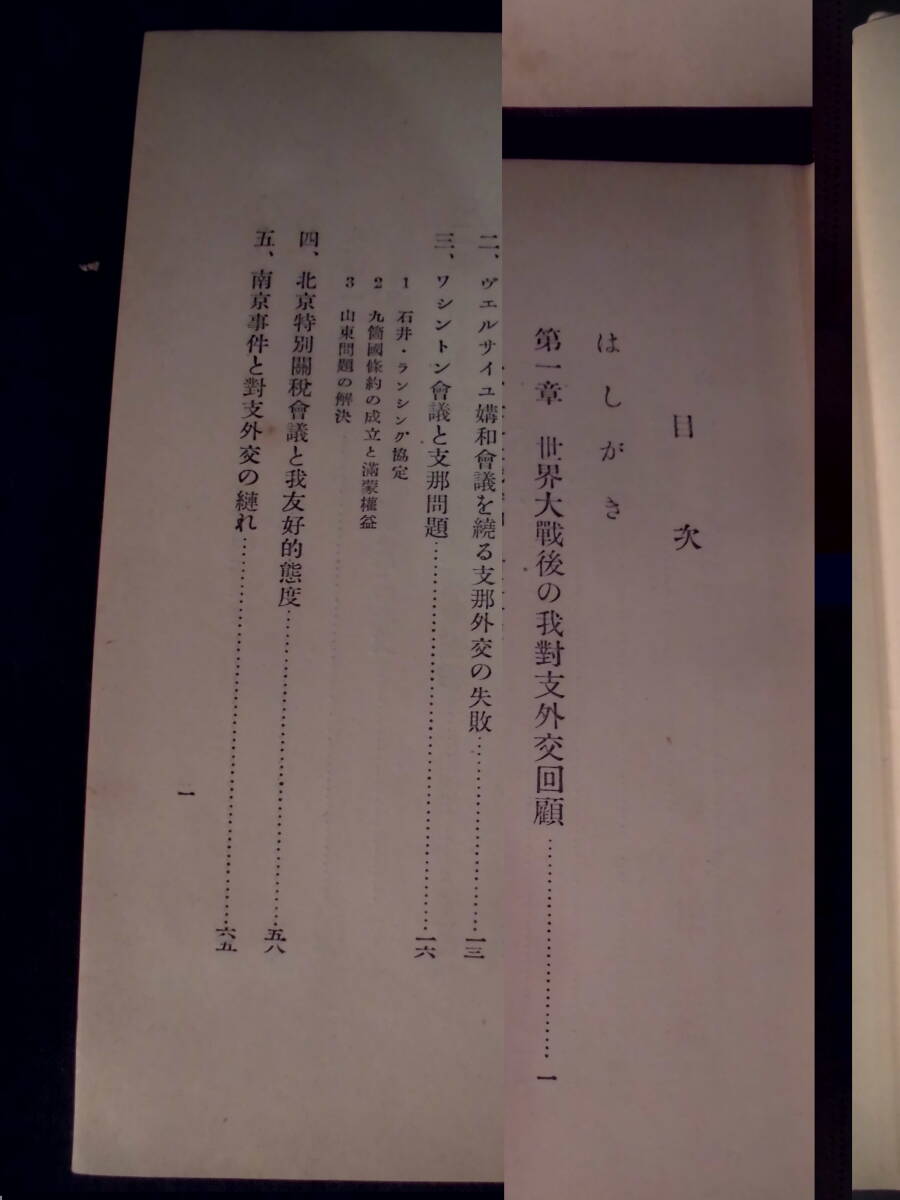 目次
はしがき
第一章 世界大戰後の我對支外交回顧…………………一
二、ヴェルサイユ媾和會議を繞る支那外交の失敗…………………一三
三、ワシントン會議と支那問題…………………一六
1 石井・ランシング協定
2 九箇國條約の成立と滿蒙權益
3 山東問題の解決
四、北京特別關稅會議と我友好的態度…………………五八
五、南京事件と對支外交の縺れ…………………六五
一